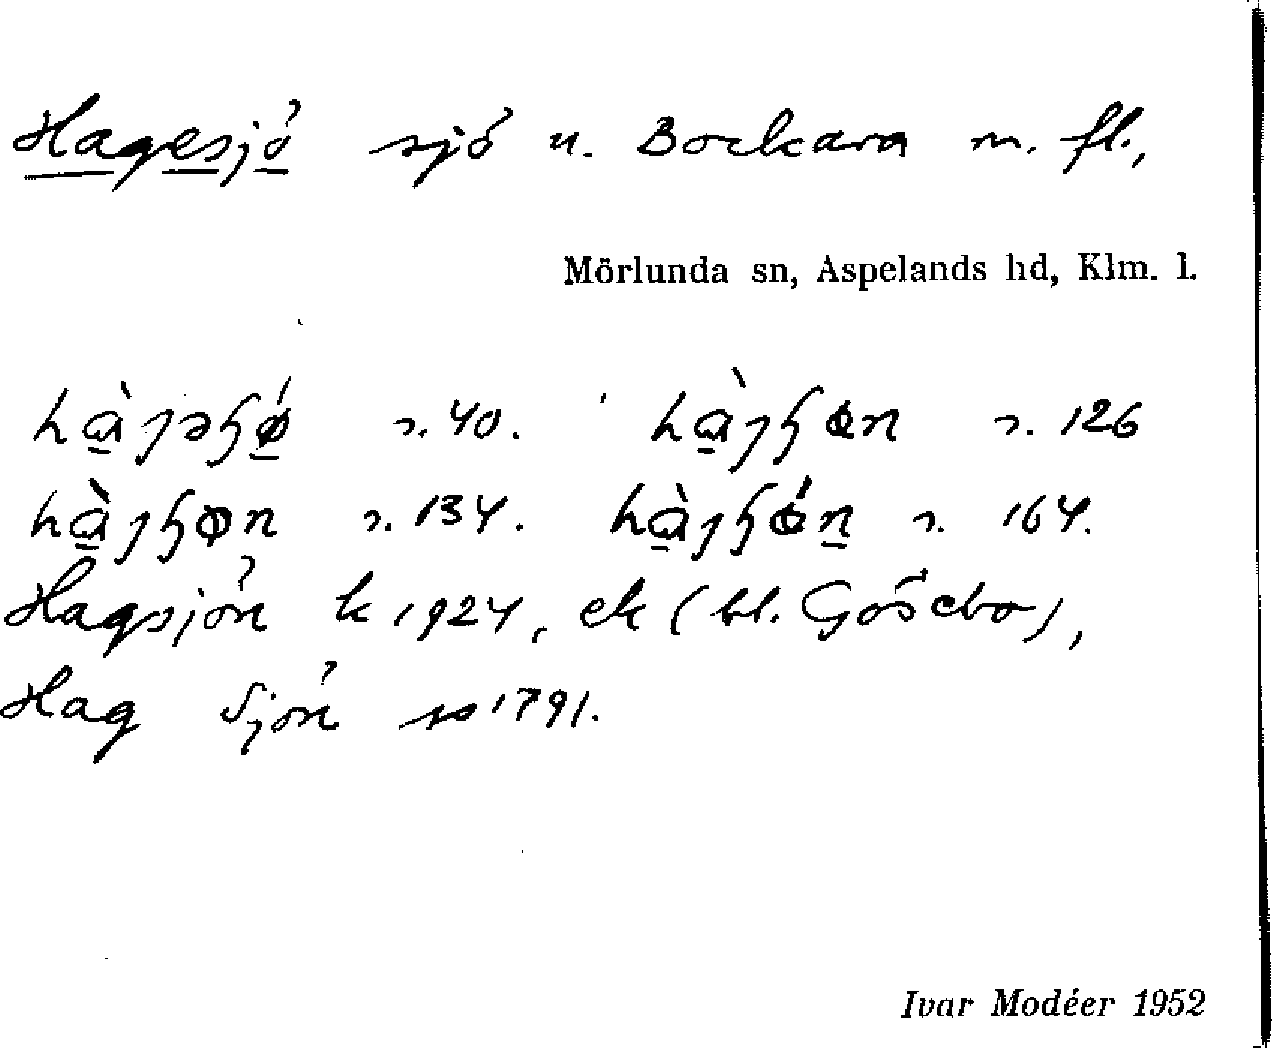 Hagesjö sjö u. Bockara m. fl.,
Mörlunda sn, Aspelands hd, Klm. l.
s. 40. s. 126
s. 134. s. 164.
Hagsjön k 1924, ek (bl. Gösebo),
Hag Sjön so 1791.
Ivar Modéer 1952